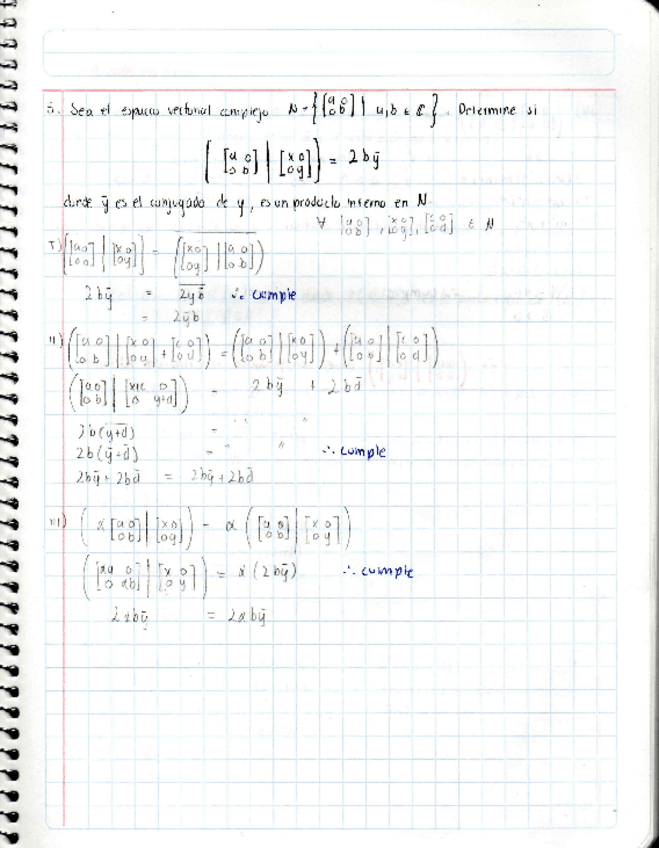 5. Sea el espacio vectorial complejo N = { [a 0; 0 b] | a, b ∈ ℂ }. Determine si
( [a 0; 0 b] | [x 0; 0 y] ) = 2bȳ
donde ȳ es el conjugado de y, es un producto interno en N.
∀ [a 0; 0 b], [x 0; 0 y], [c 0; 0 d] ∈ N
I) ( [a 0; 0 b] | [x 0; 0 y] ) = \overline{( [x 0; 0 y] | [a 0; 0 b] )}
2bȳ = \overline{2y b̄} ∴ cumple
= 2ȳb
II) ( [a 0; 0 b] | [x 0; 0 y] + [c 0; 0 d] ) = ( [a 0; 0 b] | [x 0; 0 y] ) + ( [a 0; 0 b] | [c 0; 0 d] )
( [a 0; 0 b] | [x+c 0; 0 y+d] ) = 2bȳ + 2bd̄
2b(\overline{y+d}) = " "
2b(ȳ+d̄) = " " ∴ cumple
2bȳ + 2bd̄ = 2bȳ + 2bd̄
III) ( α [a 0; 0 b] | [x 0; 0 y] ) = α ( [a 0; 0 b] | [x 0; 0 y] )
( [αa 0; 0 αb] | [x 0; 0 y] ) = α (2bȳ) ∴ cumple
2αbȳ = 2αbȳ